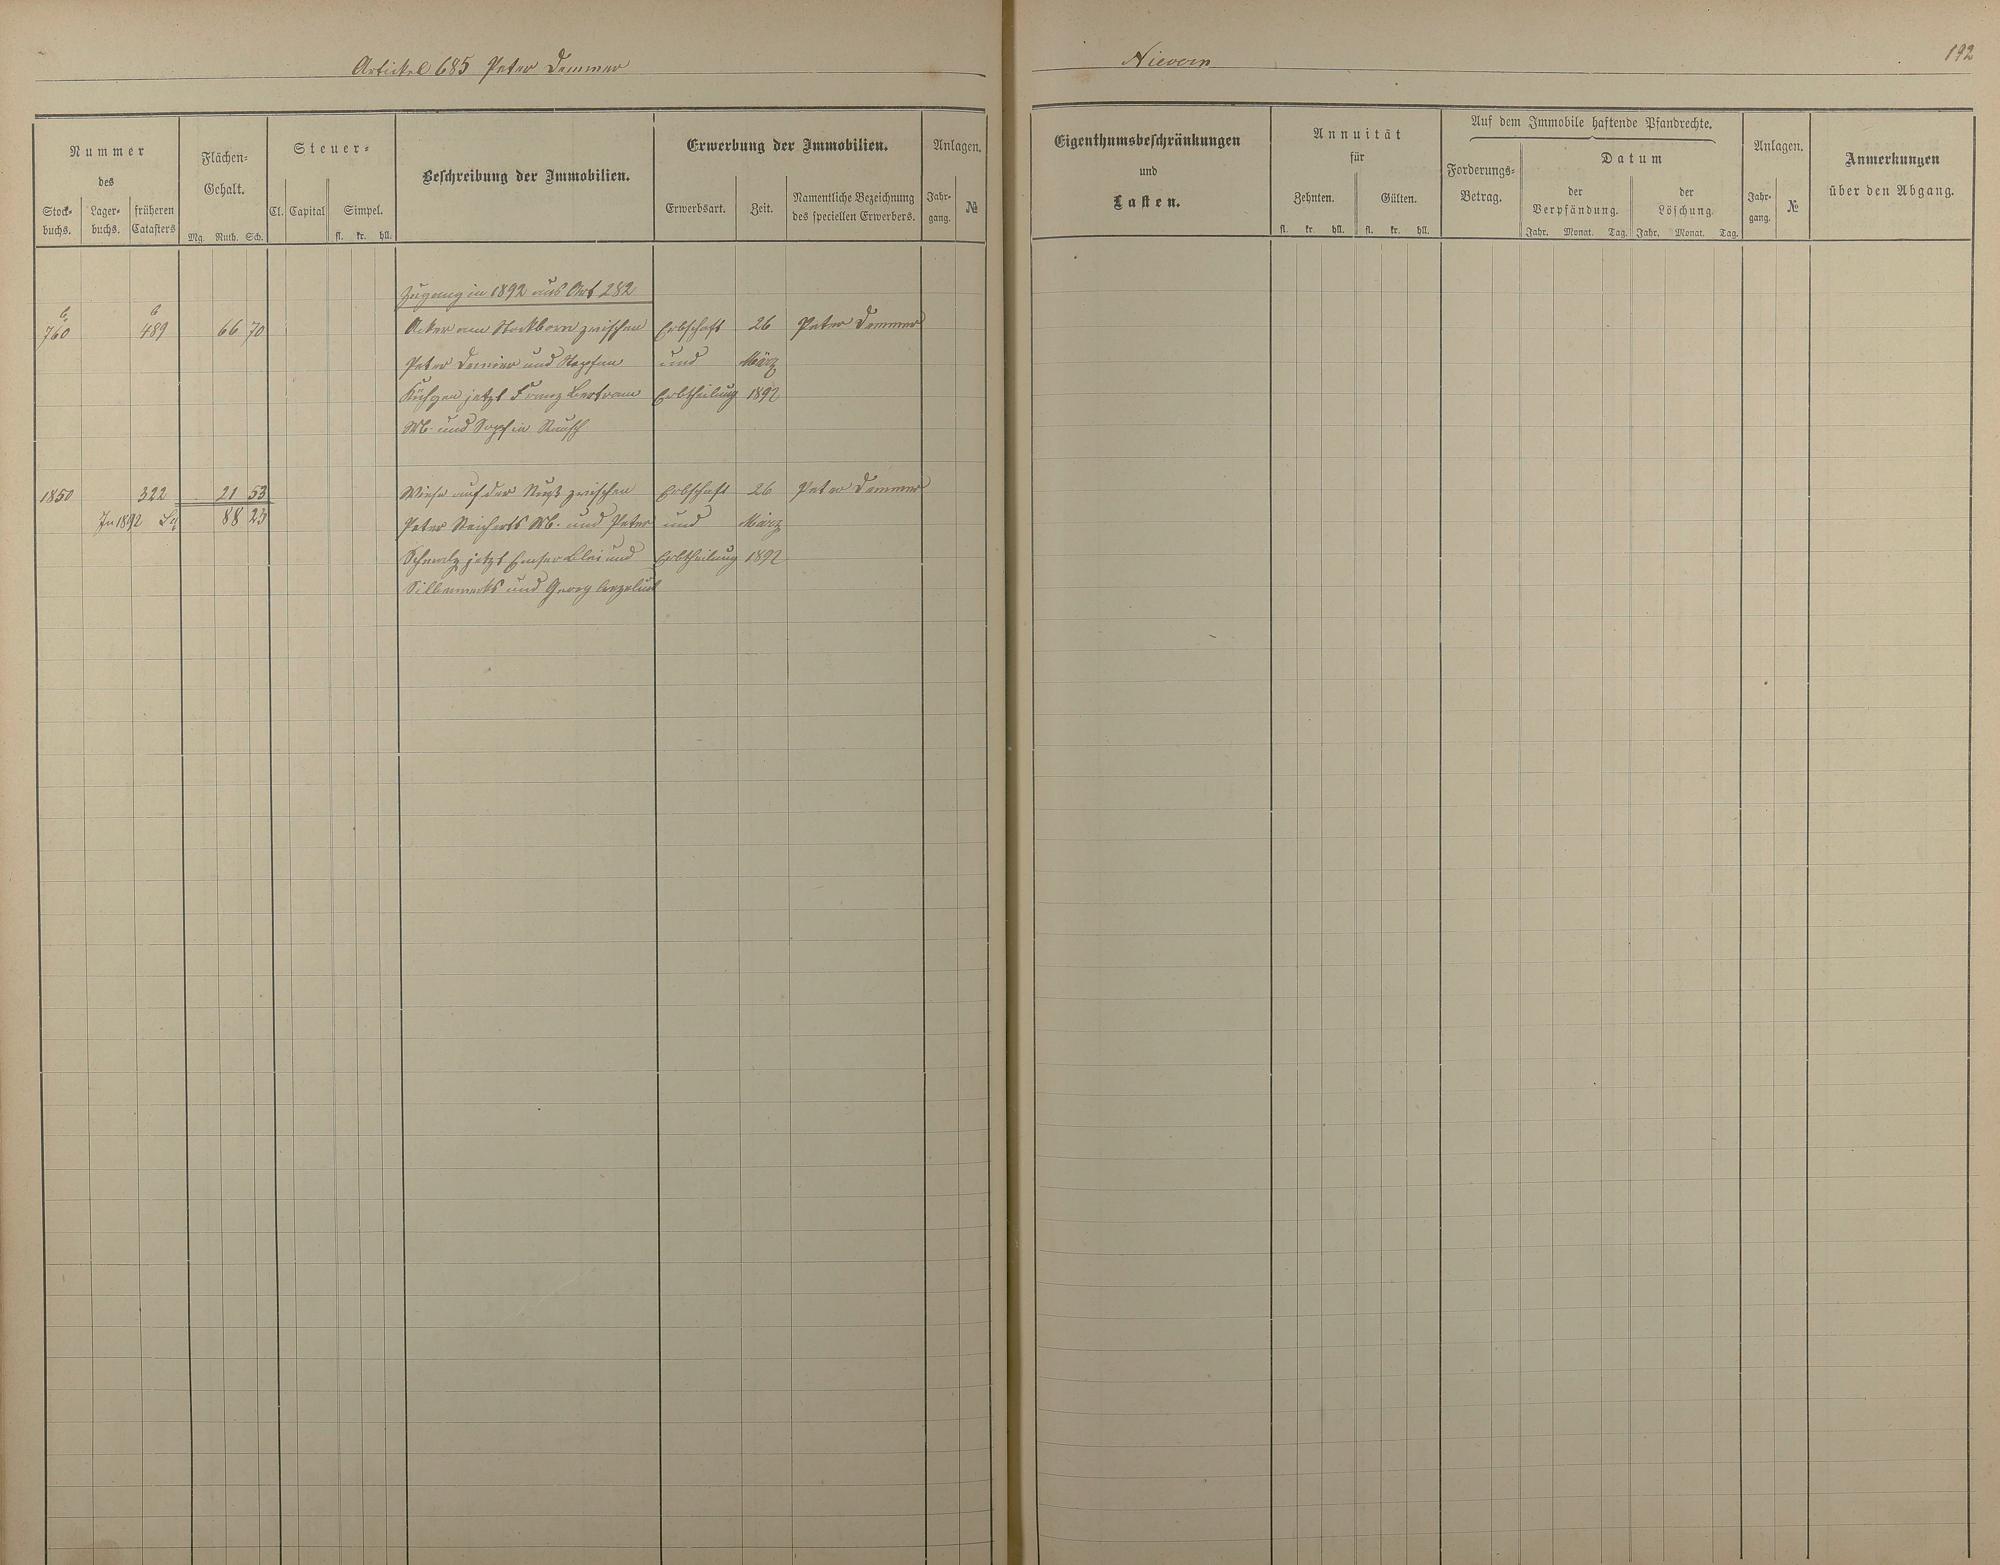 Artickel 685 Peter Demmer
Nievern
192
Nummer
des
Stock-
buchs.
Lager-
buchs.
früheren
Catasters
Flächen-
Gehalt.
Mg. Ruth. Sch.
Steuer-
Cl. Capital Simpel.
fl. kr. hll.
Beschreibung der Immobilien.
Erwerbung der Immobilien.
Erwerbsart. Zeit.
Namentliche Bezeichnung
des speciellen Erwerbers.
Anlagen.
Jahr-
gang.
№
Eigenthumsbeschränkungen
und
Lasten.
Annuität
für
Zehnten. Gülten.
fl. kr. hll. fl. kr. hll.
Auf dem Immobile haftende Pfandrechte.
Forderungs-
Betrag.
Datum
der
Verpfändung.
der
Löschung.
Jahr. Monat. Tag. Jahr. Monat. Tag.
Anlagen.
Jahr-
gang.
№
Anmerkungen
über den Abgang.
Zugang in 1892 aus Art 282
b b
760 489 66 70 Acker am Stockborn zwischen Erbschaft 26 Peter Demmer
Peter und und März
jetzt Franz Bertram Erbtheilung 1892
Wb. und
1850 322 21 53 Wiese auf der zwischen Erbschaft 26 Peter Demmer
In 1892 88 23 Peter Reicherts Wb. und Peter und März
Schmalz jetzt Emser Blei und Erbtheilung 1892
Silberwerks und Georg